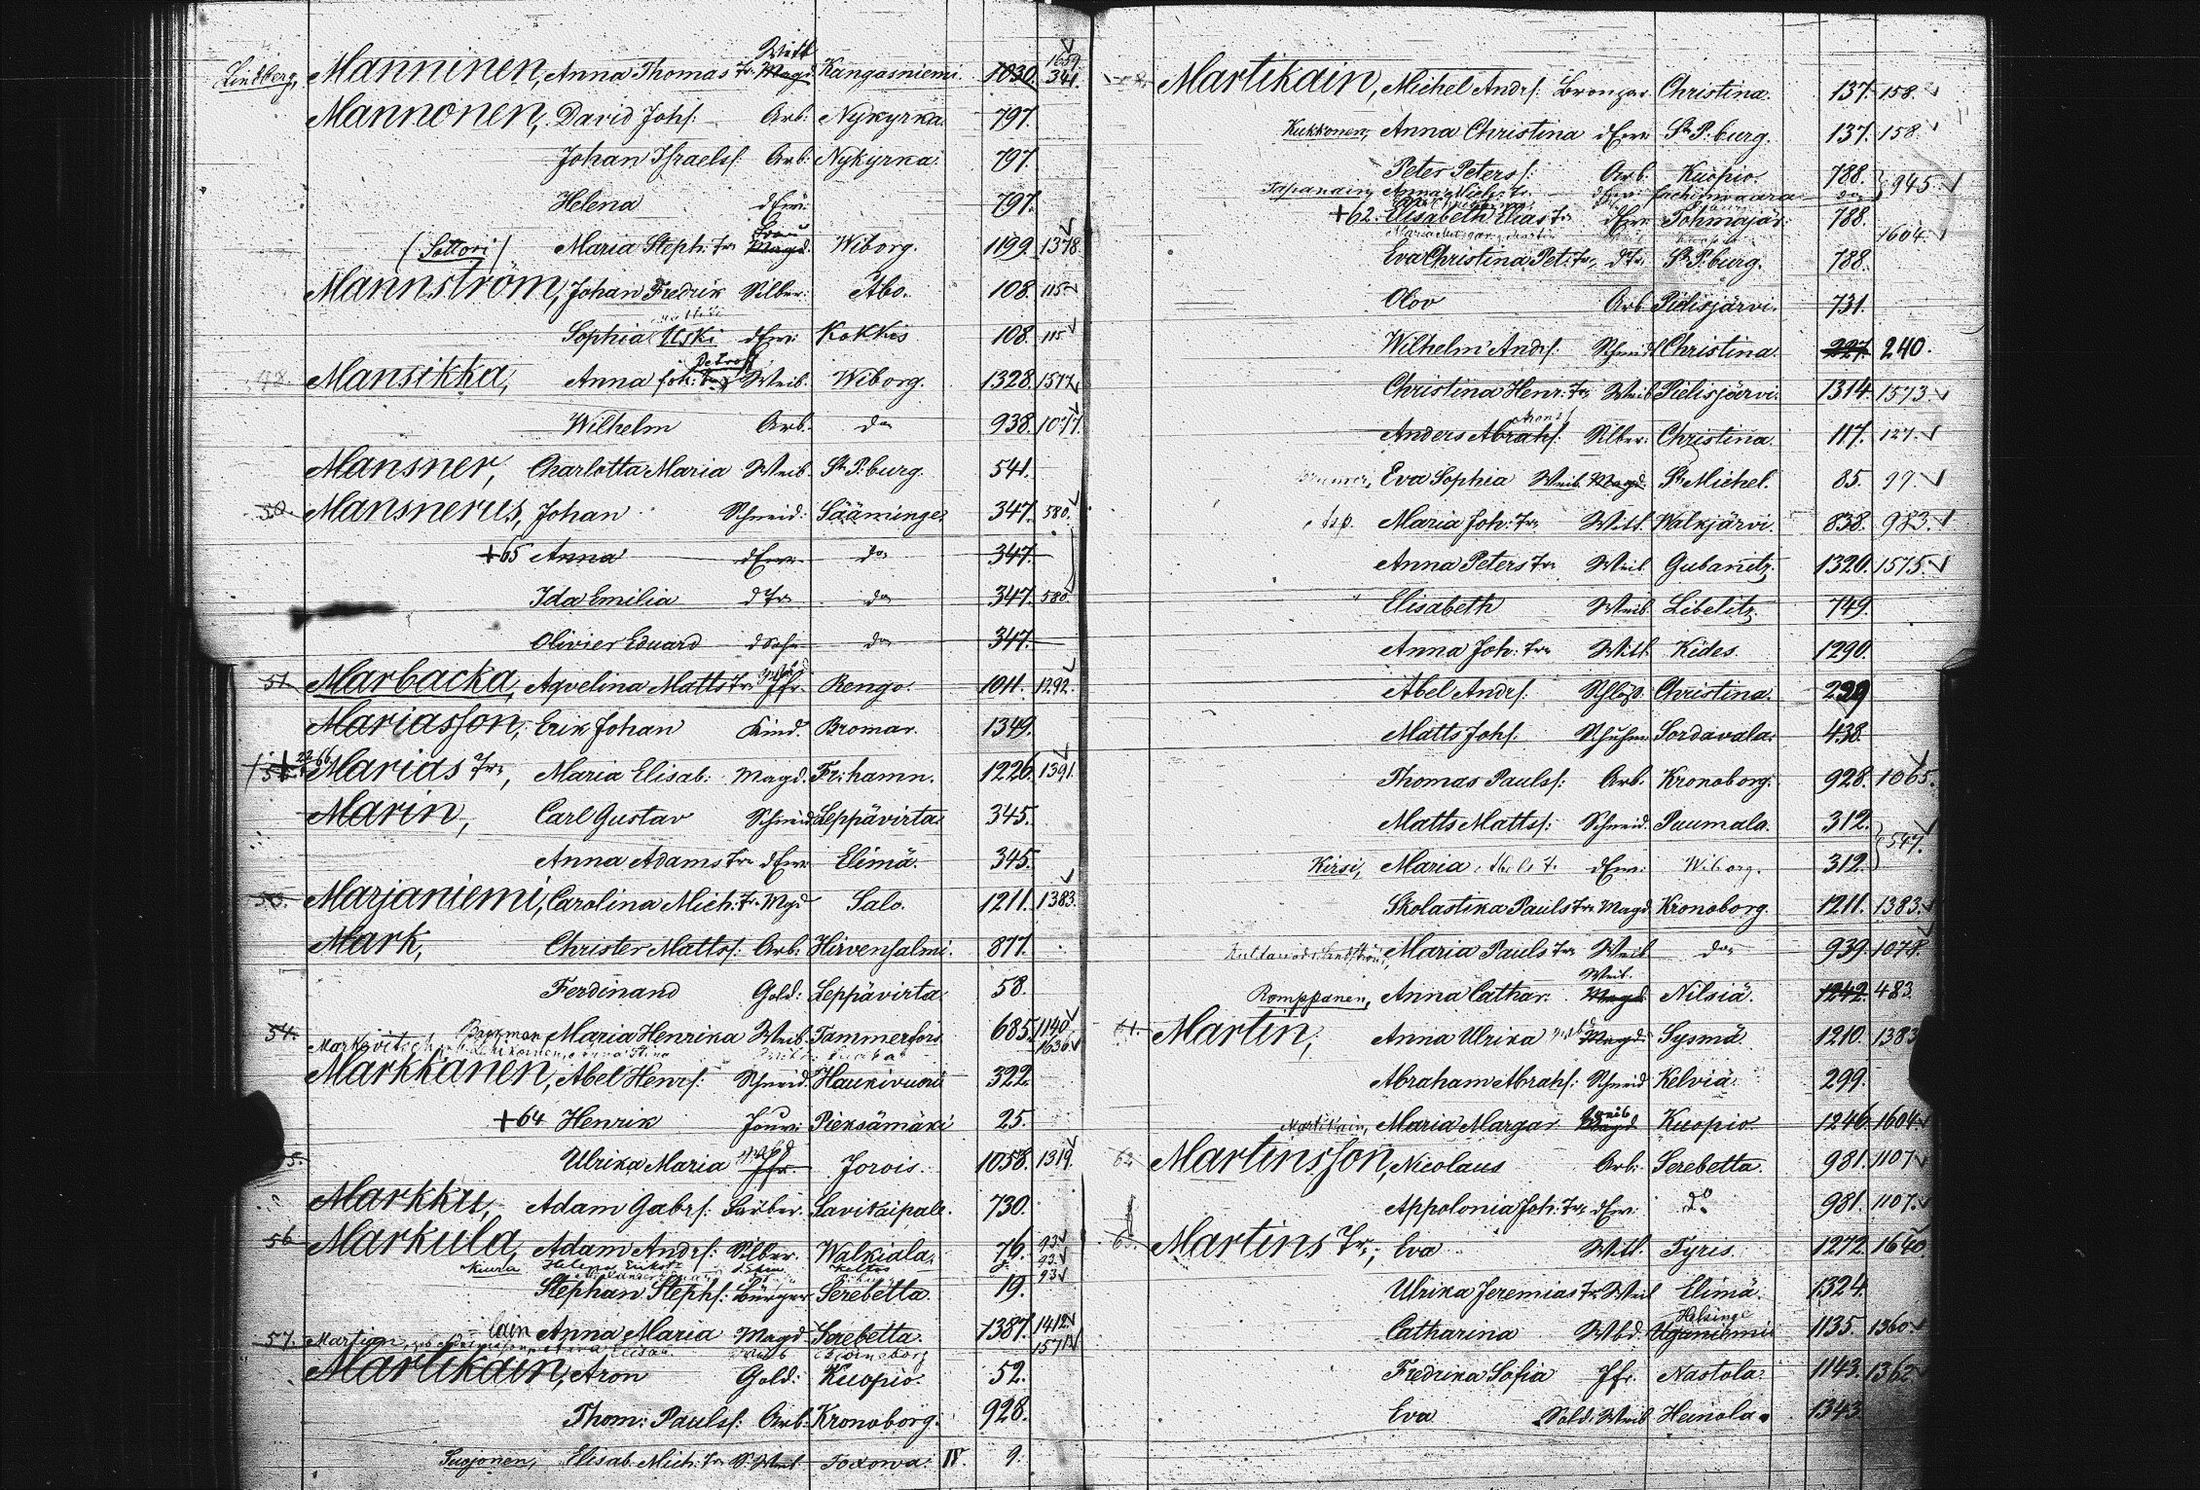 Lindberg, Manninen, Anna Thomas Tr. Magd. Witt. Kangasniemi. 1030. 341. 1659
Mannonen, David Johs: Arb: Nykyrka. 797.
Johan Israels: Arb: Nykyrka. 797.
Helena dErw: 797.
(Sottori) Maria Steph: Tr. Magd. Frau Wiborg. 1199. 1378.
Mannström, Johan Fredrik Silber: Åbo. 108. 115
Sophia Uski dErw: Kokkis 108. 115
48. Mansikka, Anna Joh: Tr. Weib. Wiborg. 1328. 1577.
Wilhelm Arb. do 938. 1077.
Mansner, Charlotta Maria Weib. St. P:burg. 541.
50. Mansnerus, Johan Schneid: Sääminge. 347. 580.
+65 Anna dErw do 347.
Ida Emilia dTr do 347. 580.
Olivier Eduard dSohn do 347.
51. Marbacka, Aqvelina Matts Tr. Jfr. Rengo. 1011. 1292.
Mariasson, Erik Johan Kind. Bromar. 1349.
Marias Tr., Maria Elisab: Magd. Fr:hamn. 1226. 1391.
Marin, Carl Gustav Schneid Leppävirta 345.
Anna Adams Tr. dErw Elimä. 345.
53. Marjaniemi, Carolina Mich: Tr. Mgd Salo. 1211. 1383.
Mark, Christer Matts: Arb: Hirvensalmi. 877.
Ferdinand Gold: Leppävirta 58.
54. Backman Maria Henrika Weib. Tammerfors 685. 1140
Markovitsch 1636
Markkanen, Abel Henrs: Schneid. Haukivuori 322.
+64 Henrik Jouw: Pieksämäki 25.
Ulrika Maria Jfr. Jorois. 1058. 1319.
Markku, Adam Gabrs: Färber. Savitaipale. 730.
56 Markula, Adam Andrs: Silber. Walkiala. 76. 93
Kiuru Helena
Stephan Stephs: Bürger Serebetta. 19. 93
57. Cain Anna Maria Magd Serebetta. 1387. 1412
Martion, Björneborg 1571
Martikain, Aron Gold: Kuopio. 52.
Thom: Pauls: Arb: Kronoborg. 928.
Suojonen, Elisab. Mich: Tr. S. Weib Toxowa. IV 9.
Martikain, Michel Andrs: Bronzar Christina. 137. 158.
Kukkonen, Anna Christina dErw: St. P:burg. 137. 158.
Peter Peters: Arb. Kuopio. 788. 945.
Tapanain, Anna Michs Tr. dErw: do
+62. Elisabeth Elias Tr. dErw: Tohmajär. 788.
1604.
Eva Christina Pet: Tr. dTr. St. P:burg. 788.
Olov Arb. Pielisjärvi. 731.
Wilhelm Andrs: Schneid Christina. 227. 240.
Christina Henr: Tr. Weib Pielisjärvi. 1314. 1573.
Anders Abrahs: Silber: Christina. 117. 127.
Eva Sophia Weib. Magd: St. Michel. 85. 99
Maria Joh: Tr. Witt. Walkjärvi. 838. 983.
Anna Peters Tr. Weib Gubanitz. 1320. 1575.
Elisabeth Weib. Libelitz. 749.
Anna Joh: Tr. Witt. Kides. 1290.
Abel Andrs: Schloss. Christina. 299
Matts Johs: Schuhm Sordavala. 438.
Thomas Pauls: Arb. Kronoborg. 928. 1065.
Matts Matts: Schneid. Puumala. 312. 547.
Kirsi, Maria dErw: Wiborg. 312.
Skolastika Pauls Tr. Magd Kronoborg. 1211. 1383.
Maria Pauls Tr. Weib do 939. 1078.
Romppanen, Anna Cathar: Magd Weib. Nilsiä. 1242. 483
61. Martin, Anna Ulrika Magd: Sysmä 1210. 1383
Abraham Abrahs: Schneid Kelviä. 299.
Martikain, Maria Margar. Magd Weib Kuopio. 1246. 1604
62. Martinsson, Nicolaus Arb: Serebetta. 981. 1107
Appolonia Joh: Tr. dErw: do 981. 1107.
63. Martins Tr., Eva Witt. Tyris. 1272. 1640
Ulrika Jeremias Tr. Weib Elimä. 1324.
Catharina Wbd. Helsinge 1135. 1360.
Fredrika Sofia Jfr. Nastola. 1143. 1362
Eva Sold: Weib Heinola. 1343.